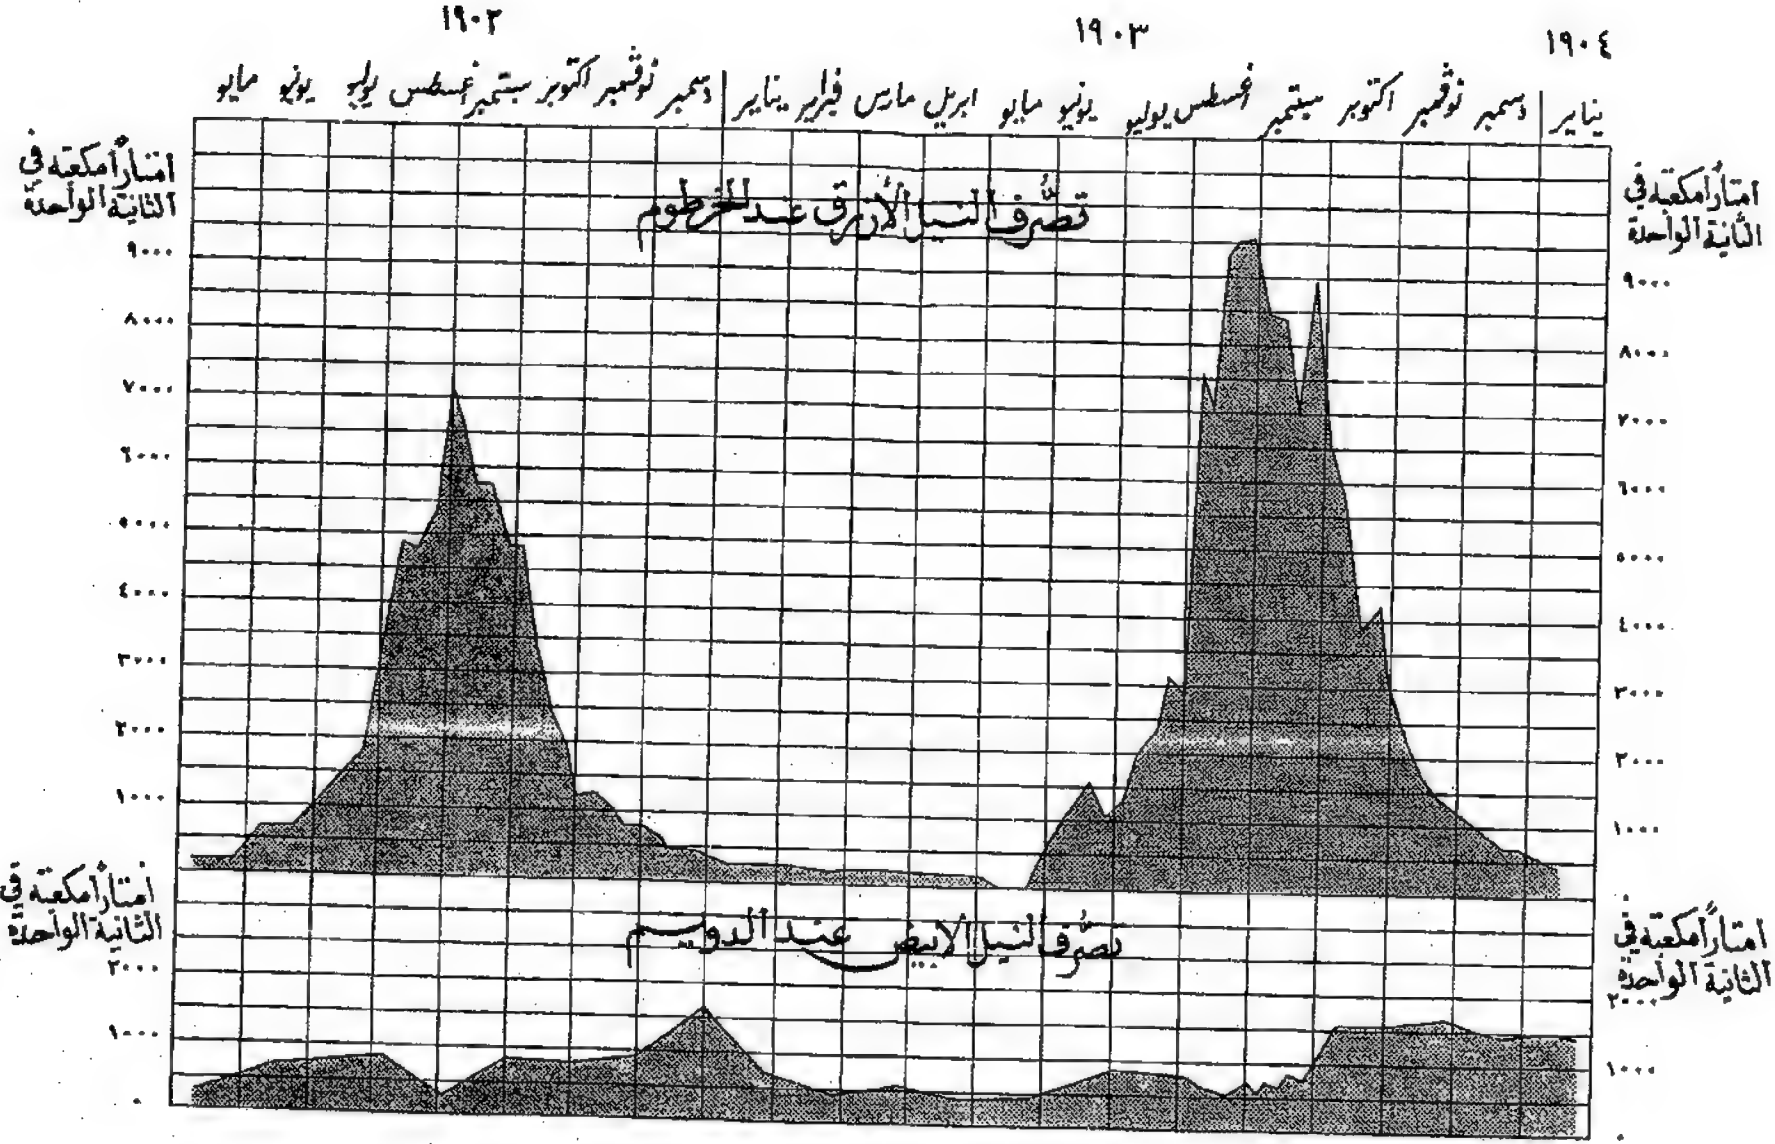 ١٩٠٢
١٩٠٣
١٩٠٤
مايو يونيو يوليو أغسطس سبتمبر اكتوبر نوڤمبر دسمبر يناير فبراير مارس ابريل مايو يونيو يوليو أغسطس سبتمبر اكتوبر نوڤمبر دسمبر يناير
امتاراً مكعبة في
الثانية الواحدة
٩٠٠٠
٨٠٠٠
٧٠٠٠
٦٠٠٠
٥٠٠٠
٤٠٠٠
٣٠٠٠
٢٠٠٠
١٠٠٠
تصرُّف النيل الأزرق عند الخرطوم
امتاراً مكعبة في
الثانية الواحدة
٩٠٠٠
٨٠٠٠
٧٠٠٠
٦٠٠٠
٥٠٠٠
٤٠٠٠
٣٠٠٠
٢٠٠٠
١٠٠٠
٠
امتاراً مكعبة في
الثانية الواحدة
٢٠٠٠
١٠٠٠
٠
تصرُّف النيل الابيض عند الدويم
امتاراً مكعبة في
الثانية الواحدة
٢٠٠٠
١٠٠٠
٠